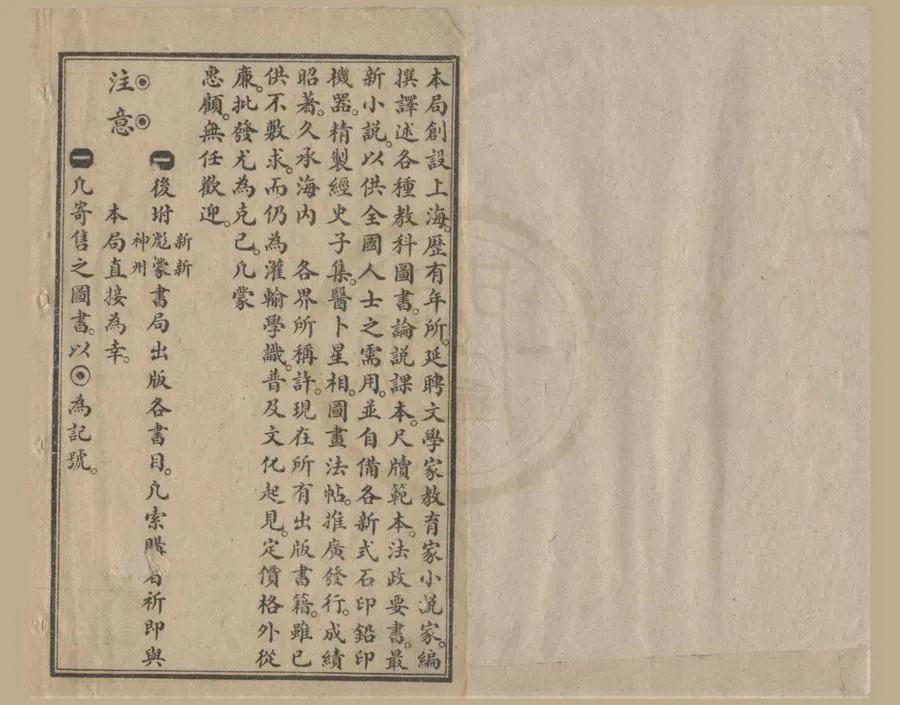 本局創設上海。歷有年所。延聘文學家教育家小說家。編
撰譯述各種教科圖書。論說課本。尺牘範本。法政要書。最
新小說。以供全國人士之需用。並自備各新式石印鉛印
機器。精製經史子集。醫卜星相。圖畫法帖。推廣發行。成績
昭著。久承海內 各界所稱許。現在所有出版書籍。雖已
供不敷求。而仍為灌輸學識。普及文化起見。定價格外從
廉。批發尤為克己。凡蒙
惠顧。無任歡迎。
注意
㊀後坿彪蒙書局出版各書目。凡索購者祈即與
新新
神州
本局直接為幸。
㊀凡寄售之圖書。以◉為記號。